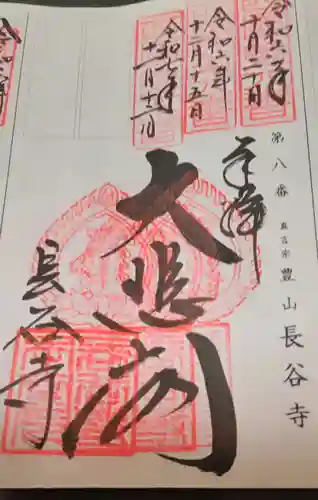 第八番 真言宗 豊山 長谷寺
奉拝
令和六年
十月二十日
令和六年
十二月十五日
令和七年
大悲閣
長谷寺